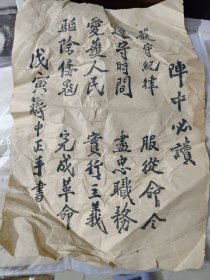 陣中必讀
嚴守紀律 服從命令
遵守時間 盡忠職務
愛護人民 實行主義
驅除倭寇 完成革命
戊寅 蔣中正手書